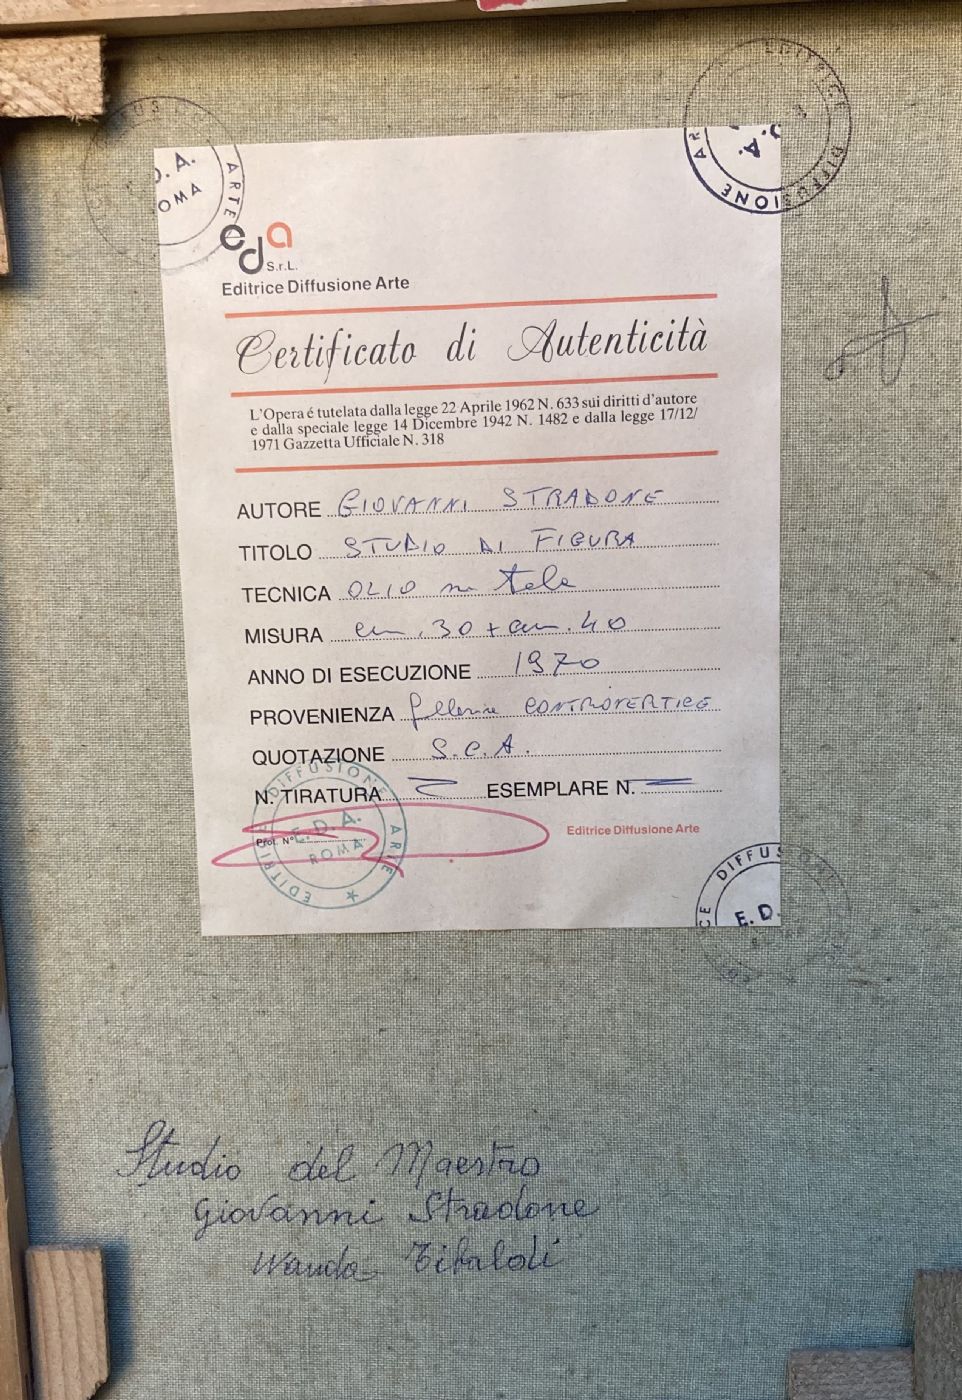 EDITRICE DIFFUSIONE AR
E. D. A.
ARTE
D. A.
ROMA
eda
S.r.L.
Editrice Diffusione Arte
Certificato di Autenticità
L'Opera é tutelata dalla legge 22 Aprile 1962 N. 633 sui diritti d'autore
e dalla speciale legge 14 Dicembre 1942 N. 1482 e dalla legge 17/12/
1971 Gazzetta Ufficiale N. 318
AUTORE GIOVANNI STRADONE
TITOLO STUDIO DI FIGURA
TECNICA OLIO su tela
MISURA cm. 30 + cm. 40
ANNO DI ESECUZIONE 1970
PROVENIENZA CONTROVERTICE
QUOTAZIONE S.C.A.
N. TIRATURA ESEMPLARE N.
EDITRICE DIFFUSIONE ARTE
E. D. A.
ROMA
Prot. N°
Editrice Diffusione Arte
CE DIFFUS
E. D.
Studio del Maestro
Giovanni Stradone
Wanda Tibaldi